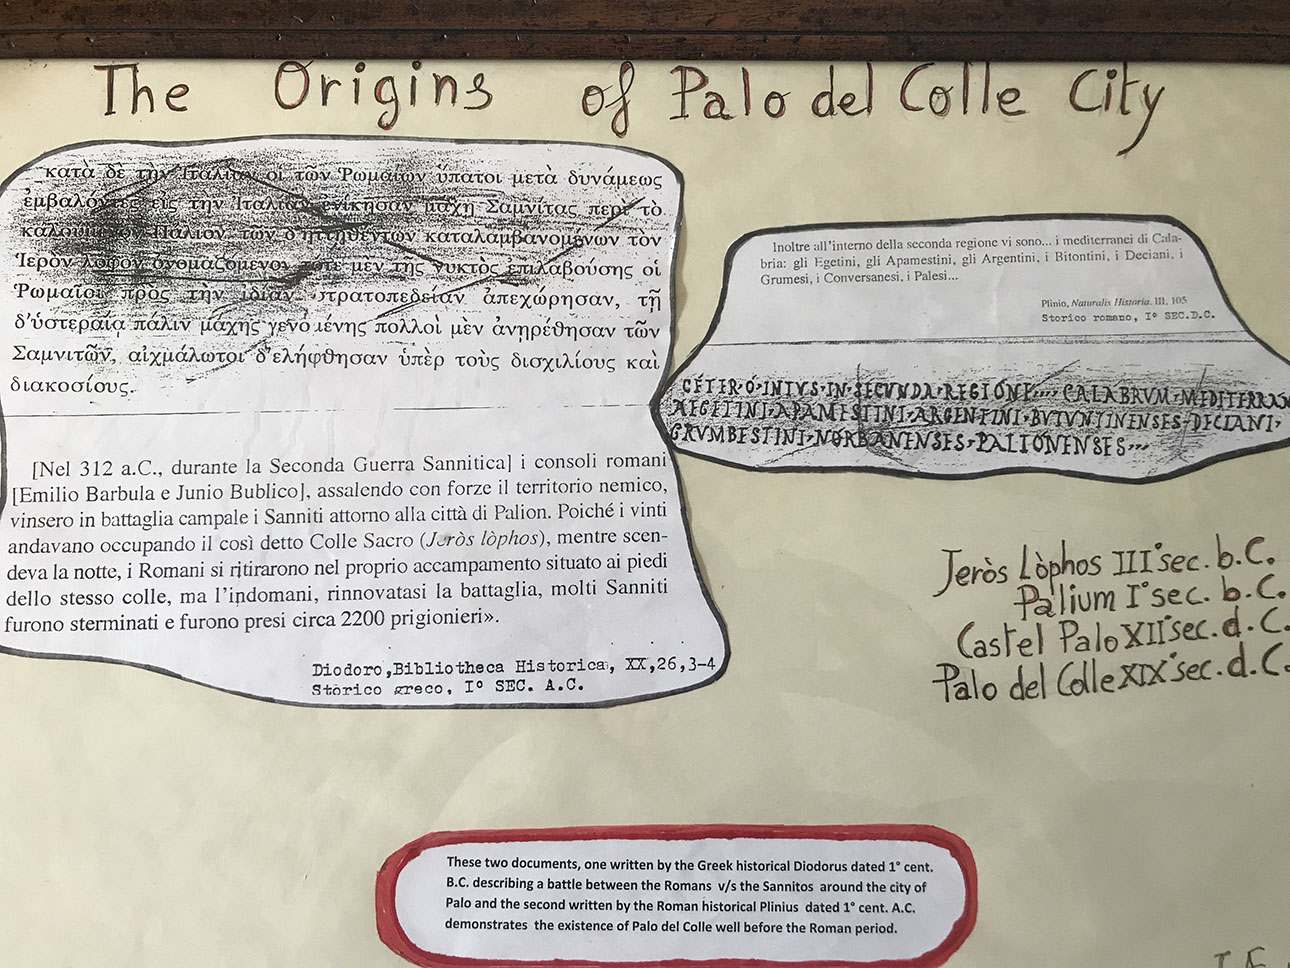 The Origins of Palo del Colle City
κατὰ δὲ τὴν Ἰταλίαν οἱ τῶν Ῥωμαίων ὕπατοι μετὰ δυνάμεως
ἐμβαλόντες εἰς τὴν Ἰταλίαν ἐνίκησαν μάχῃ Σαμνίτας περὶ τὸ
καλούμενον Πάλιον. τῶν δ'ἡττηθέντων καταλαμβανομένων τὸν
Ἱερὸν λόφον ὀνομαζόμενον τότε μὲν τῆς νυκτὸς ἐπιλαβούσης οἱ
Ῥωμαῖοι πρὸς τὴν ἰδίαν στρατοπεδείαν ἀπεχώρησαν, τῇ
δ'ὑστεραίᾳ πάλιν μάχης γενομένης πολλοὶ μὲν ἀνῃρέθησαν τῶν
Σαμνιτῶν, αἰχμάλωτοι δ'ἐλήφθησαν ὑπὲρ τοὺς δισχιλίους καὶ
διακοσίους.
[Nel 312 a.C., durante la Seconda Guerra Sannitica] i consoli romani
[Emilio Barbula e Junio Bublico], assalendo con forze il territorio nemico,
vinsero in battaglia campale i Sanniti attorno alla città di Palion. Poiché i vinti
andavano occupando il così detto Colle Sacro (Jeròs lòphos), mentre scen-
deva la notte, i Romani si ritirarono nel proprio accampamento situato ai piedi
dello stesso colle, ma l'indomani, rinnovatasi la battaglia, molti Sanniti
furono sterminati e furono presi circa 2200 prigionieri».
Diodoro,Bibliotheca Historica, XX,26,3-4
Stòrico greco, I° SEC. A.C.
Inoltre all'interno della seconda regione vi sono... i mediterranei di Cala-
bria: gli Egetini, gli Apamestini, gli Argentini, i Bitontini, i Deciani, i
Grumesi, i Conversanesi, i Palesi...
Plinio, Naturalis Historia. III, 105
Storico romano, I° SEC.D.C.
CÉTER·Ó·INTVS·IN·SECVNDA·REGIÓNE,,,, CALABRVM·MEDITERRAN
AEGETINI·APAMESTINI·ARGENTINI·BVTVNTINENSES·DECIANI·
GRVMBESTINI·NORBANENSES·PALIONENSES,,,
Jeròs Lòphos III°sec. b.C.
Palium I°sec. b.C.
Castel Palo XII°sec. d.C.
Palo del Colle XIX°sec. d.C.
These two documents, one written by the Greek historical Diodorus dated 1° cent.
B.C. describing a battle between the Romans v/s the Sannitos around the city of
Palo and the second written by the Roman historical Plinius dated 1° cent. A.C.
demonstrates the existence of Palo del Colle well before the Roman period.